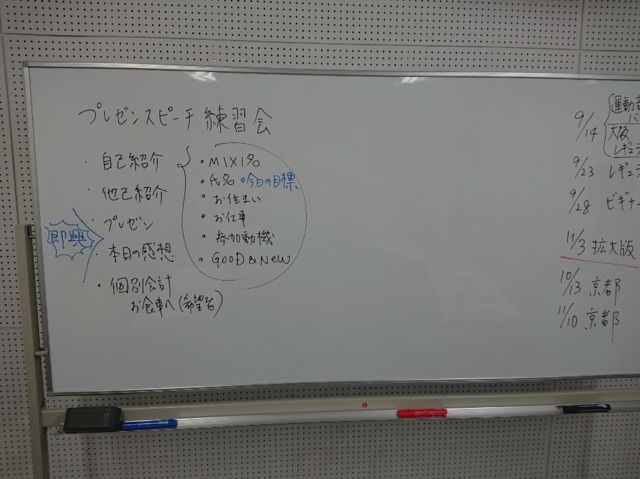 プレゼンスピーチ練習会
・自己紹介
・他己紹介
・プレゼン
・本日の感想
・個別会計
お食事へ(希望者)
即興
・MIXI名
・氏名 ・今日の目標
・お住まい
・お仕事
・参加動機
・GOOD & NEW
9/14 運動
大阪
レギュラ
9/23 レギュ
9/28 ビギナ
11/3 拡大版
10/13 京都
11/10 京都